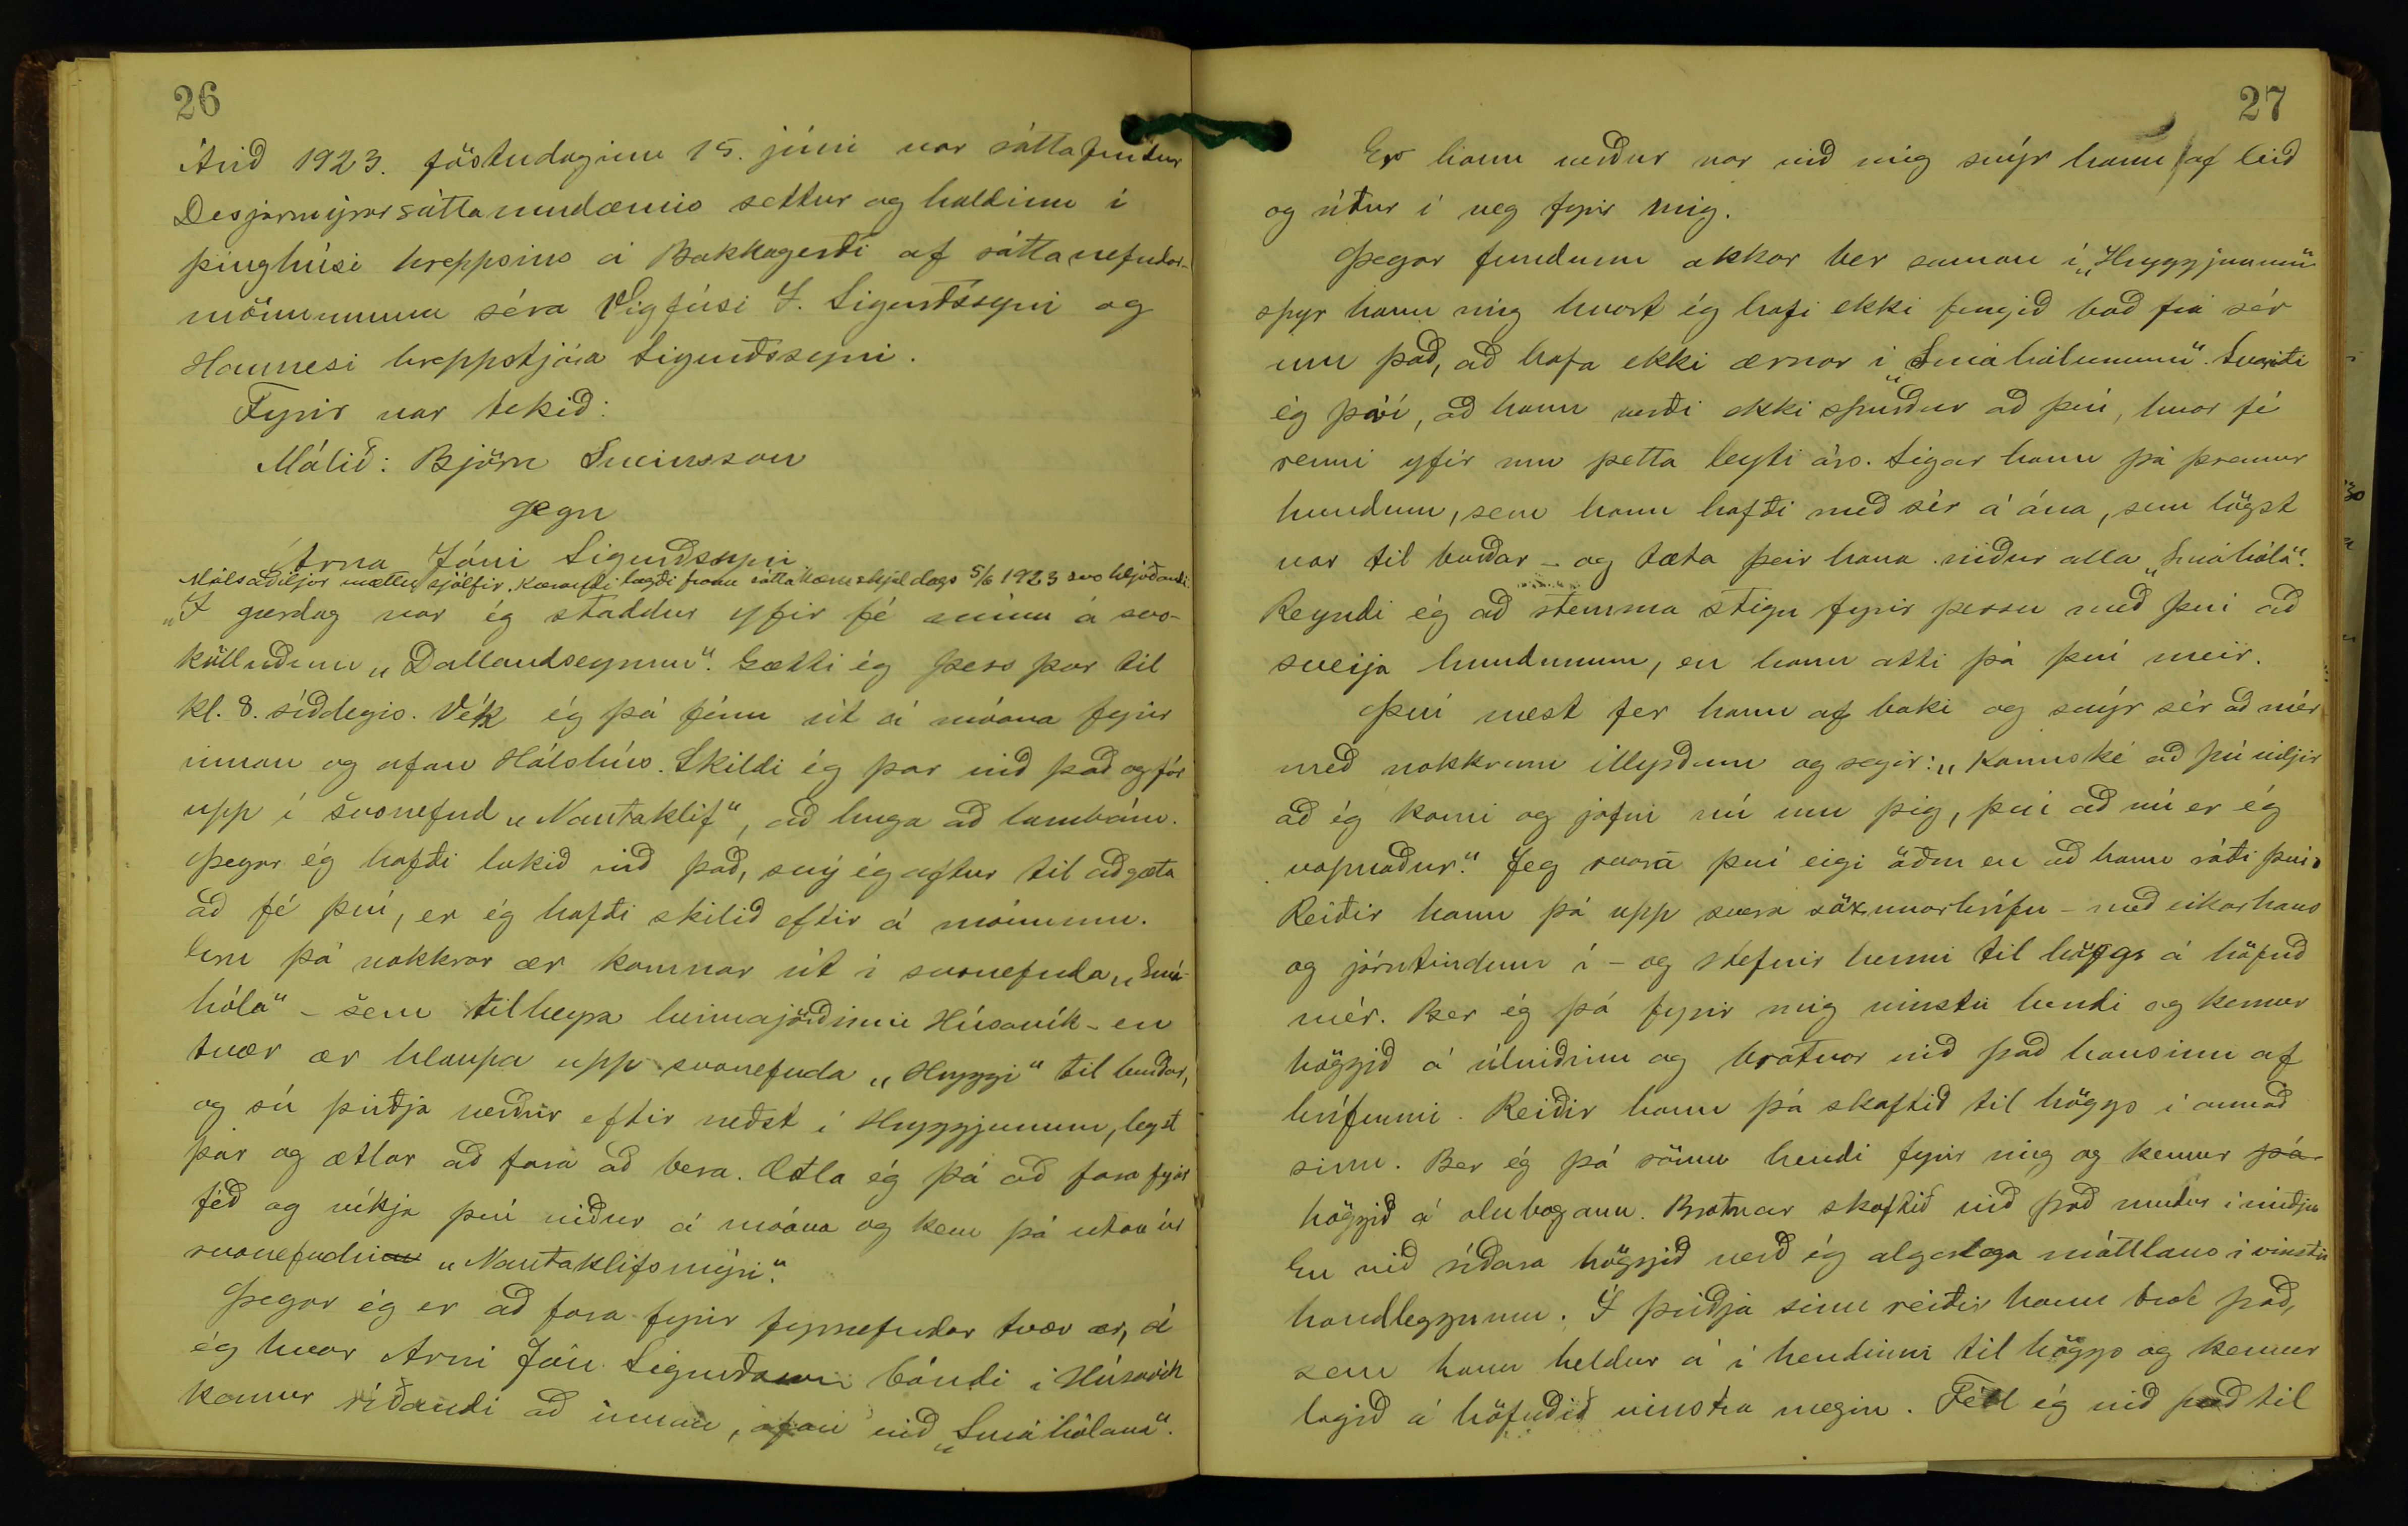 26
Árið 1923. föstudaginn 15. júní var sáttafundur
Desjarmýrarsáttaumdæmis settur og haldinn í
þinghúsi hreppsins á Bakkagerði af sáttanefndar-
mönnunum séra Vigfúsi I. Sigurðssyni og
Hannesi hreppstjóra Sigurðssyni.
Fyrir var tekið:
Málið: Björn Sveinsson
gegn
Árna Jóni Sigurðssyni
Málsaðiljar mættu sjálfir. Kærandi lagði fram sáttakæruskjal dags 5/6 1923 svo hljóðandi:
"Í gærdag var ég staddur yfir fé mínu á svo-
kölluðum "Dallandseyrum". Gætti ég þess þar til
kl. 8. síðdegis. Vék ég þá fénu út á móana fyrir
innan og ofan Hálshús. Skildi ég þar við það og fór
upp í svonefnd "Nautaklif", að huga að lambám.
Þegar ég hafði lokið við það, sný ég aftur til að gæta
að fé því, er ég hafði skilið eftir á móunum.
Eru þá nokkrar ær komnar út í svonefnda "Smá-
hóla" - sem tilheyra heimajörðinni Húsavík - en
tvær ær hlaupa upp svonefnda "Hryggi" til burðar,
og sú þriðja verður eftir neðst í Hryggjunum, legst
þar og ætlar að fara að bera. Ætla ég þá að fara fyrir
féð og víkja því niður á móana og kem þá utan úr
svonefndri "Nautaklifsmýri".
Þegar ég er að fara fyrir fyrnefndar tvær ær, sé
ég hvar Árni Jón Sigurðsson bóndi í Húsavík
kemur ríðandi að innan, ofan við "Smáhólana".
27
Er hann verður var við mig snýr hann af leið
og ríður í veg fyrir mig.
Þegar fundum okkar ber saman í "Hryggjunum"
spyr hann mig hvort ég hafi ekki fengið boð frá sér
um það, að hafa ekki ærnar í "Smáhólunum". Svaraði
ég því, að hann verði ekki spurður að því, hvar fé
renni yfir um þetta leyti árs. Sigar hann þá þremur
hundum, sem hann hafði með sér á ána, sem lögst
var til burðar - og tæta þeir hana niður alla "Smáhóla".
Reyndi ég að stemma stigu fyrir þessu með því að
sveija hundunum, en hann atti þá því meir.
Því næst fer hann af baki og snýr sér að mér
með nokkrum illyrðum og segir: "Kannské að þú viljir
að ég komi og jafni nú um þig, því að nú er ég
vopnaður." Jeg svara því eigi öðru en að hann ráði því.
Reiðir hann þá upp svera söxunarhrífu - með eikarhaus
og járntindum í - og stefnir henni til höggs á höfuð
mér. Ber ég þá fyrir mig vinstri hendi og kemur
höggið á úlnliðinn og brotnar við það hausinn af
hrífunni. Reiðir hann þá skaftið til höggs í annað
sinn. Ber ég þá sömu hendi fyrir mig og kemur þá
höggið á olnbogann. Brotnar skaftið við það sundur í miðju
En við síðara höggið verð ég algerlega máttlaus í vinstri
handleggnum. Í þriðja sinn reiðir hann brot það,
sem hann heldur á í hendinni til höggs og kemur
lagið á höfuðið vinstra megin. Féll ég við það til